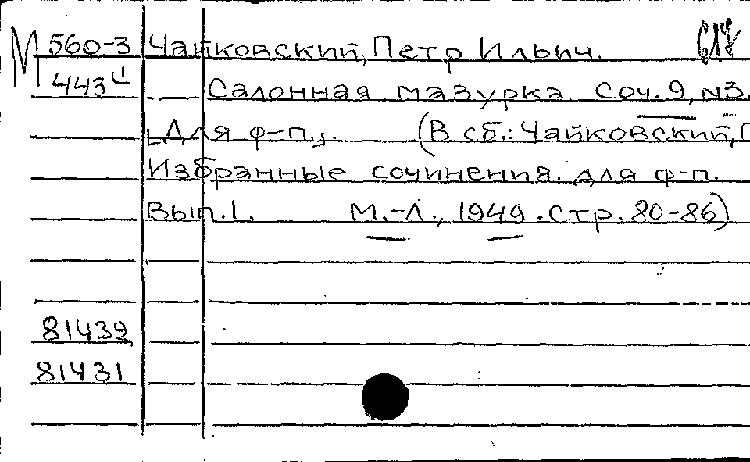 М 560-3 Чайковский, Петр Ильич.
443 Салонная мазурка. Соч. 9, №3.
[Для ф-п]. (В сб.: Чайковский, П
Избранные сочинения для ф-п.
Вып. 1. М.-Л., 1949. Стр. 80-86)
81439
81431